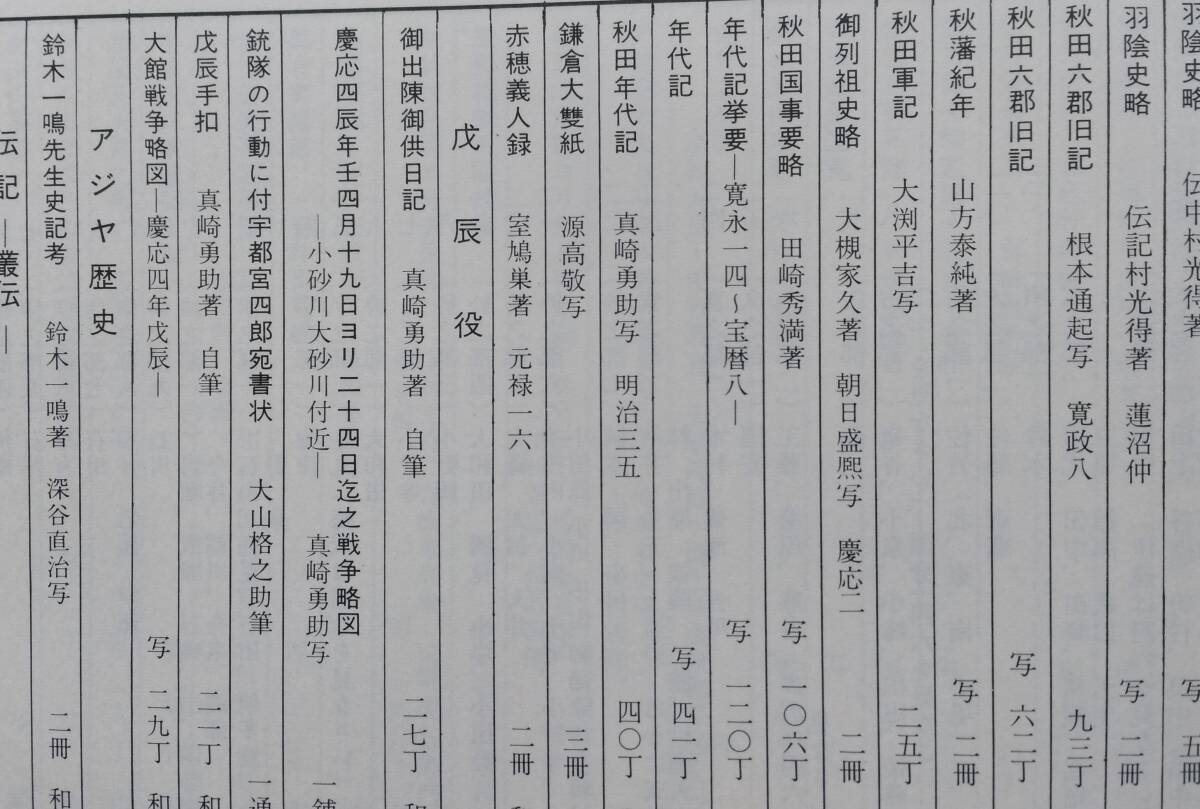 羽陰史略　伝中村光得著　写　五冊
羽陰史略　伝記村光得著　蓮沼仲　写　二冊
秋田六郡旧記　根本通起写　寛政八　九三丁
秋田六郡旧記　写　六二丁
秋藩紀年　山方泰純著　写　二冊
秋田軍記　大渕平吉写　二五丁
御列祖史略　大槻家久著　朝日盛熈写　慶応二　二冊
秋田国事要略　田崎秀満著　写　一〇六丁
年代記挙要―寛永一四～宝暦八―　写　一二〇丁
年代記　写　四一丁
秋田年代記　真崎勇助写　明治三五　四〇丁
鎌倉大雙紙　源高敬写　三冊
赤穂義人録　室鳩巣著　元禄一六　二冊
戊辰役
御出陳御供日記　真崎勇助著　自筆　二七丁
慶応四辰年壬四月十九日ヨリ二十四日迄之戦争略図
―小砂川大砂川付近―　真崎勇助写　一舗
銃隊の行動に付宇都宮四郎宛書状　大山格之助筆　一通
戊辰手扣　真崎勇助著　自筆　二一丁　和
大館戦争略図―慶応四年戊辰―　写　二九丁　和
アジヤ歴史
鈴木一鳴先生史記考　鈴木一鳴著　深谷直治写　二冊　和
伝記―叢伝―